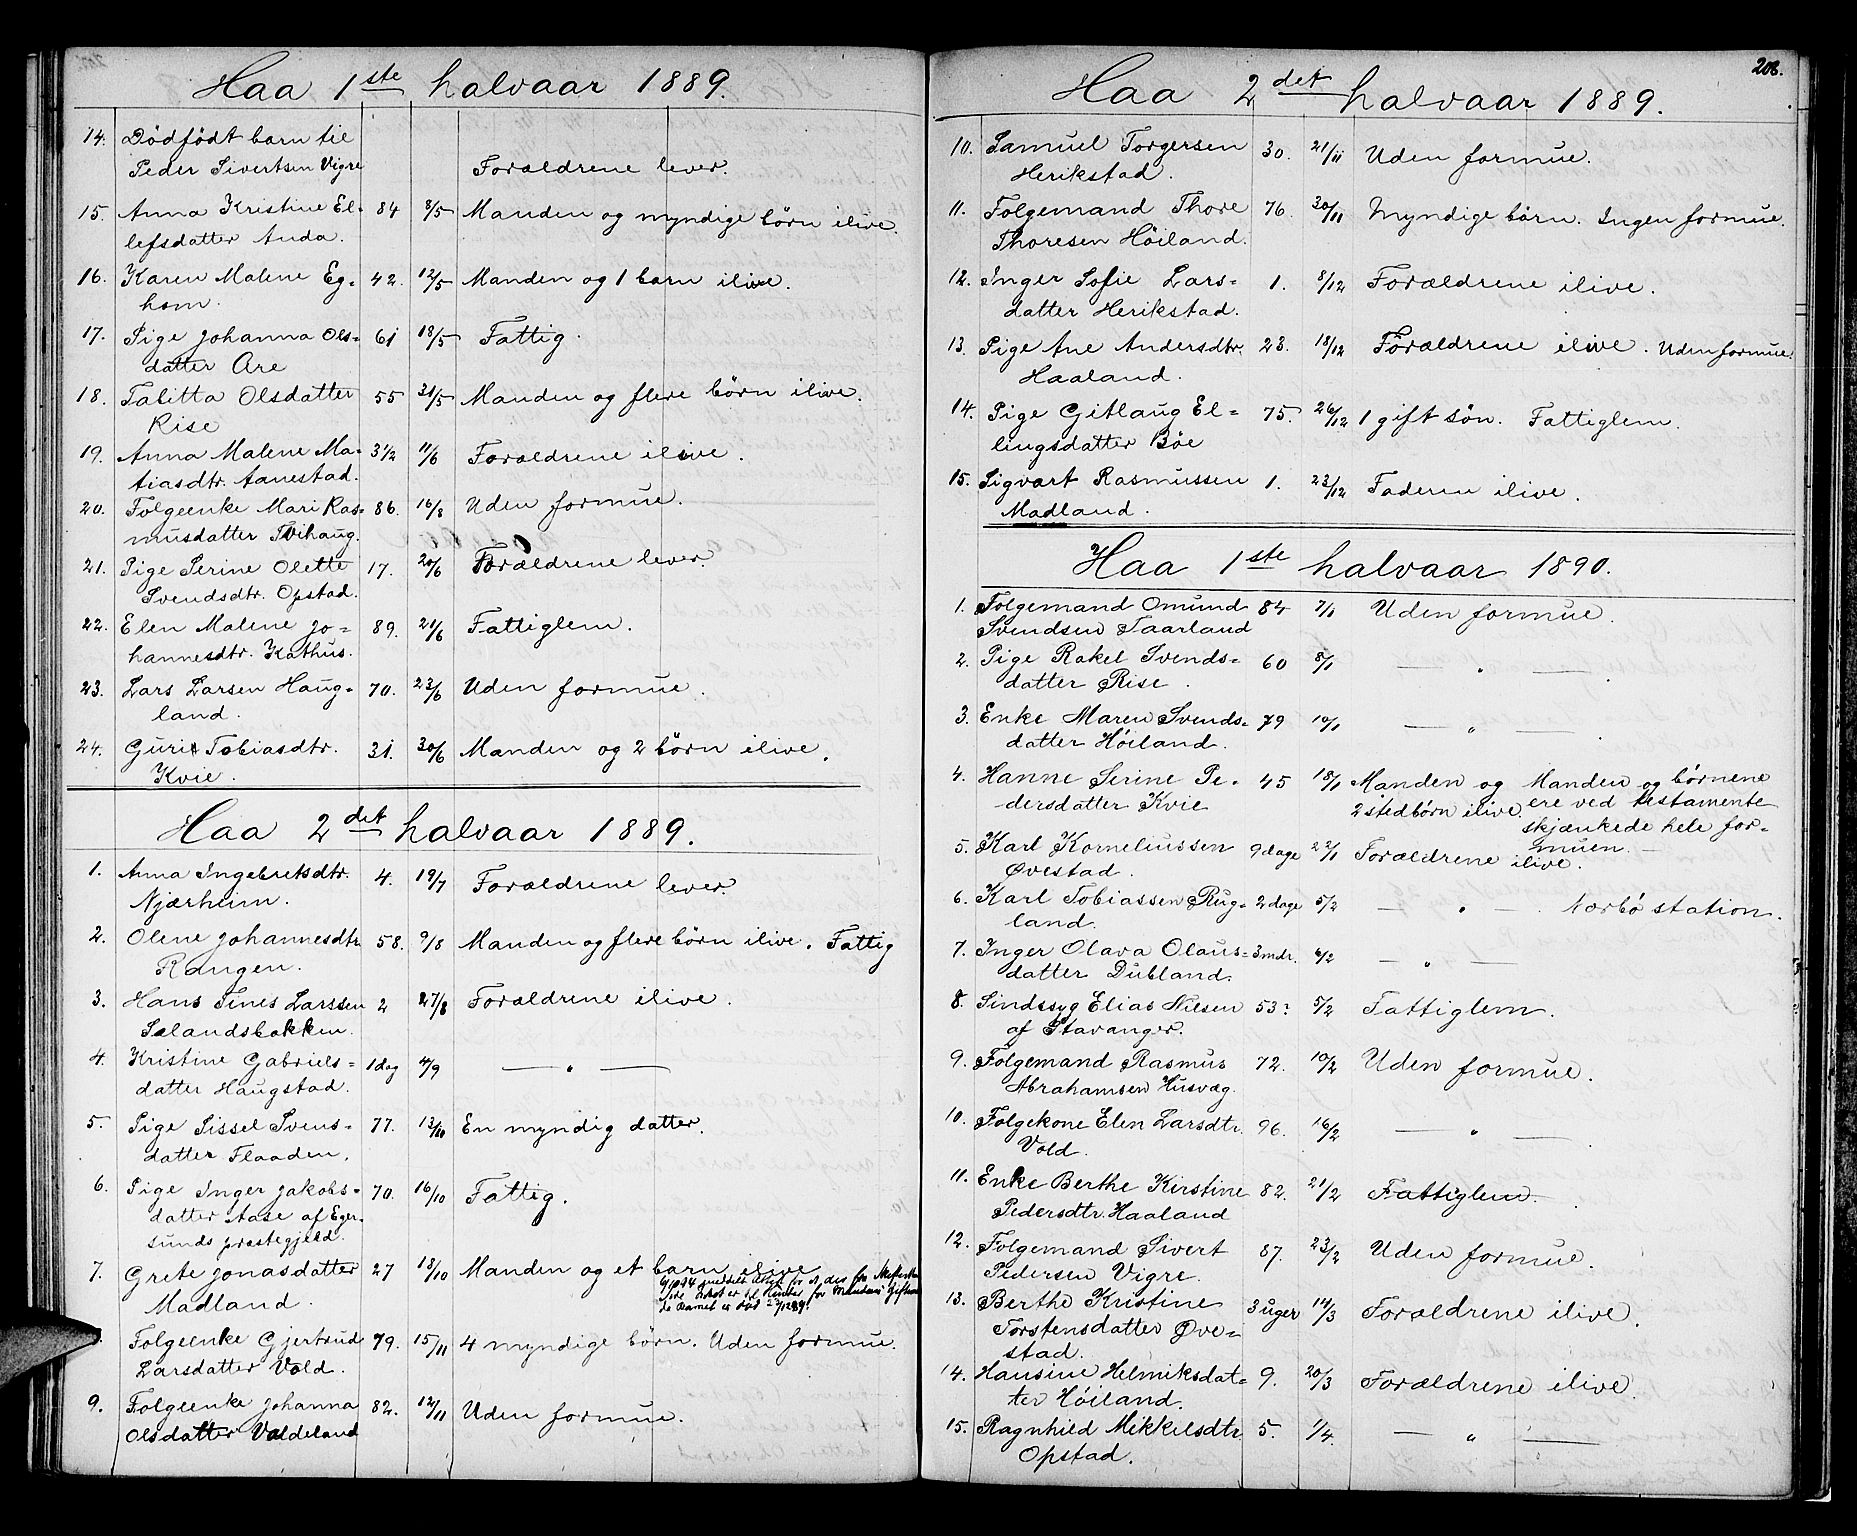 Haa 1ste halvaar 1889.
14. Dödfödt barn til
Peder Sivertsen Vigre Forældrene lever.
15. Anna Kristine El= 84 8/5 Manden og myndige börn ilive.
lefsdatter Anda.
16. Karen Malene Eg= 42. 12/5 Manden og 1 barn ilive.
hom.
17. Pige Johanna Ols= 61 18/5 Fattig.
datter Are
18. Tabitta Olsdatter 55 31/5 Manden og flere börn ilive.
Rise
19. Anna Malene Ma= 3 1/2 11/6 Forældrene ilive.
tiasdtr. Aanestad.
20. Folgeenke Mari Ras= 86. 16/8 Uden formue.
musdatter Tvihaug.
21. Pige Serine Olette 17. 20/6 Forældrene lever.
Svendsdtr. Opstad.
22. Elen Malene Jo= 89. 21/6 Fattiglem.
hannesdtr. Kathus.
23. Lars Larsen Haug= 70. 23/6 Uden formue.
land.
24. Guri Tobiasdtr. 31. 30/6 Manden og 2 börn ilive.
Kvie.
Haa 2det halvaar 1889.
1. Anna Ingebretsdtr. 4. 19/7 Forældrene lever.
Njærheim.
2. Olene Johannesdtr. 58. 9/8 Manden og flere börn ilive. Fattig
Rangen.
3. Hans Tines Larssen 2 27/8 Forældrene ilive.
Salandsbakken.
4. Kristine Gabriels= 1 dag 4/9 — " —
datter Haugstad.
5. Pige Sissel Svens= 77. 13/10 En myndig datter.
datter Flaaden.
6. Pige Inger Jakobs= 70. 16/10 Fattig.
datter Aase af Eger=
sunds præstegjeld.
7. Grete Jonasdatter 27 18/10 Manden og et barn ilive
Madland.
Folgeenke Gjertrud 79. 15/11 4 myndige börn. Uden formue.
Larsdatter Vold.
9. Folgeenke Johanna 82. 12/11 Uden formue.
Olsdatter Valdeland
206.
Haa 2det halvaar 1889.
10. Samuel Torgersen 30. 21/11 Uden formue.
Herikstad.
11. Folgemand Thore 76. 30/11 Myndige börn. Ingen formue.
Thoresen Höiland.
12. Inger Sofie Lars= 1. 8/12 Forældrene ilive.
datter Herikstad.
13. Pige Ane Andersdtr. 23. 18/12 Forældrene ilive. Uden formue.
Haaland.
14. Pige Gitlaug El= 75. 26/12 1 gift sön. Fattiglem.
lingsdatter Böe
15. Sigvart Rasmussen 1. 23/12 Faderen ilive.
Madland.
Haa 1ste halvaar 1890.
1. Folgemand Omund 84 7/1 Uden formue.
Svendsen Taarland
2. Pige Rakel Svends= 60 8/1 — " —
datter Rise.
3. Enke Maren Svends= 79 10/1 — " —
datter Höiland.
4. Hanne Serine Pe= 45 18/1 Manden og Manden og börnene
dersdatter Kvie 2 stedbörn ilive. ere ved testamente
skjænkede hele for=
muen.
5. Karl Korneliussen 9 dage 22/1 Forældrene ilive.
Øvestad.
6. Karl Tobiassen Rug= 2 dage 5/2 — " — . Nærbö station.
land.
7. Inger Olava Olaus= 3 mdr. 6/2 — " —
datter Dubland.
8. Sindssyg Elias Nilsen 53? 5/2 Fattiglem.
af Stavanger.
9. Folgemand Rasmus 72. 10/2 Uden formue.
Abrahamsen Husvæg.
10. Folgekone Elen Larsdtr. 96. 16/2 — " —
Vold.
11. Enke Berthe Kirstine 82. 21/2 Fattiglem.
Pedersdtr. Haaland
12. Folgemand Sivert 87. 23/2 Uden formue.
Pedersen Vigre.
13. Berthe Kristine 3 uger 14/3 Forældrene ilive.
Torstensdatter Øve=
stad.
14. Hansine Helmiksdat= 9. 20/3 Forældrene ilive.
ter Höiland.
15. Ragnhild Mikkelsdtr. 5. 1/4. — " —
Opstad.